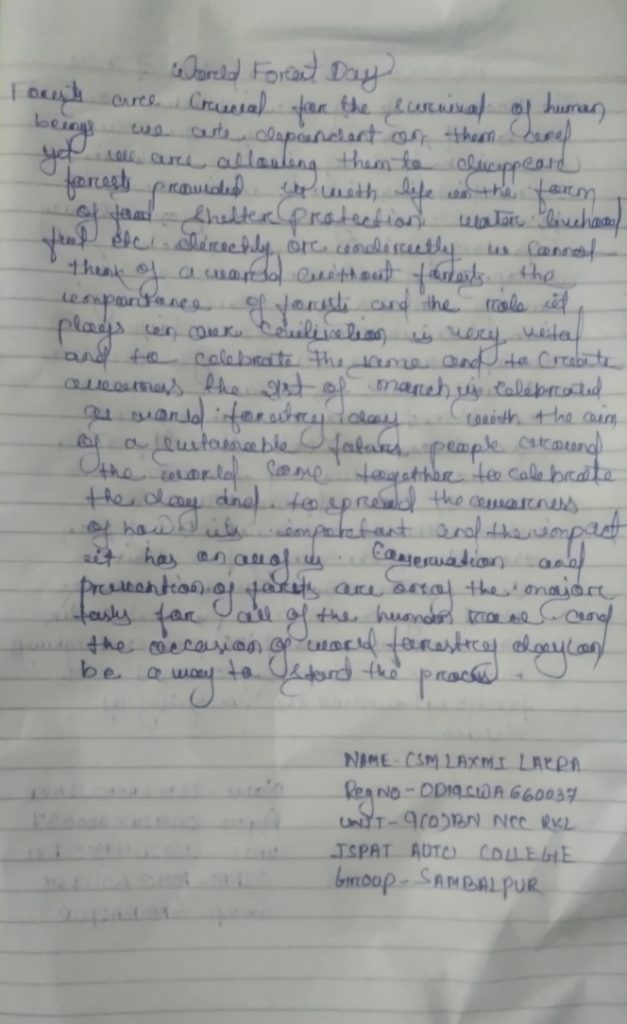 World Forest Day
Forests are Crucial for the survival of human
beings we are dependant on them and
yet we are allowing them to disappear
forests provided us with life in the form
of food shelter protection water livehood
fuel etc. directly or indirectly we cannot
think of a world without forests the
importance of forests and the role it
plays in our civilisation is very vital
and to celebrate the same and to Create
awareness the 21st of march is Celebrated
as world forestry day with the aim
of a sustainable future people around
the world Come together to celebrate
the day and to spread the awareness
of how its important and the impact
it has on all of us. Conservation and
prevention of forests are one of the major
tasks for all of the human race and
the occasion of world forestry day can
be a way to start the process.
NAME- CSM LAXMI LAKRA
Reg No - OD19SWA660037
UNIT - 9(O)BN NCC RKL
ISPAT AUTO COLLEGE
Group - SAMBALPUR